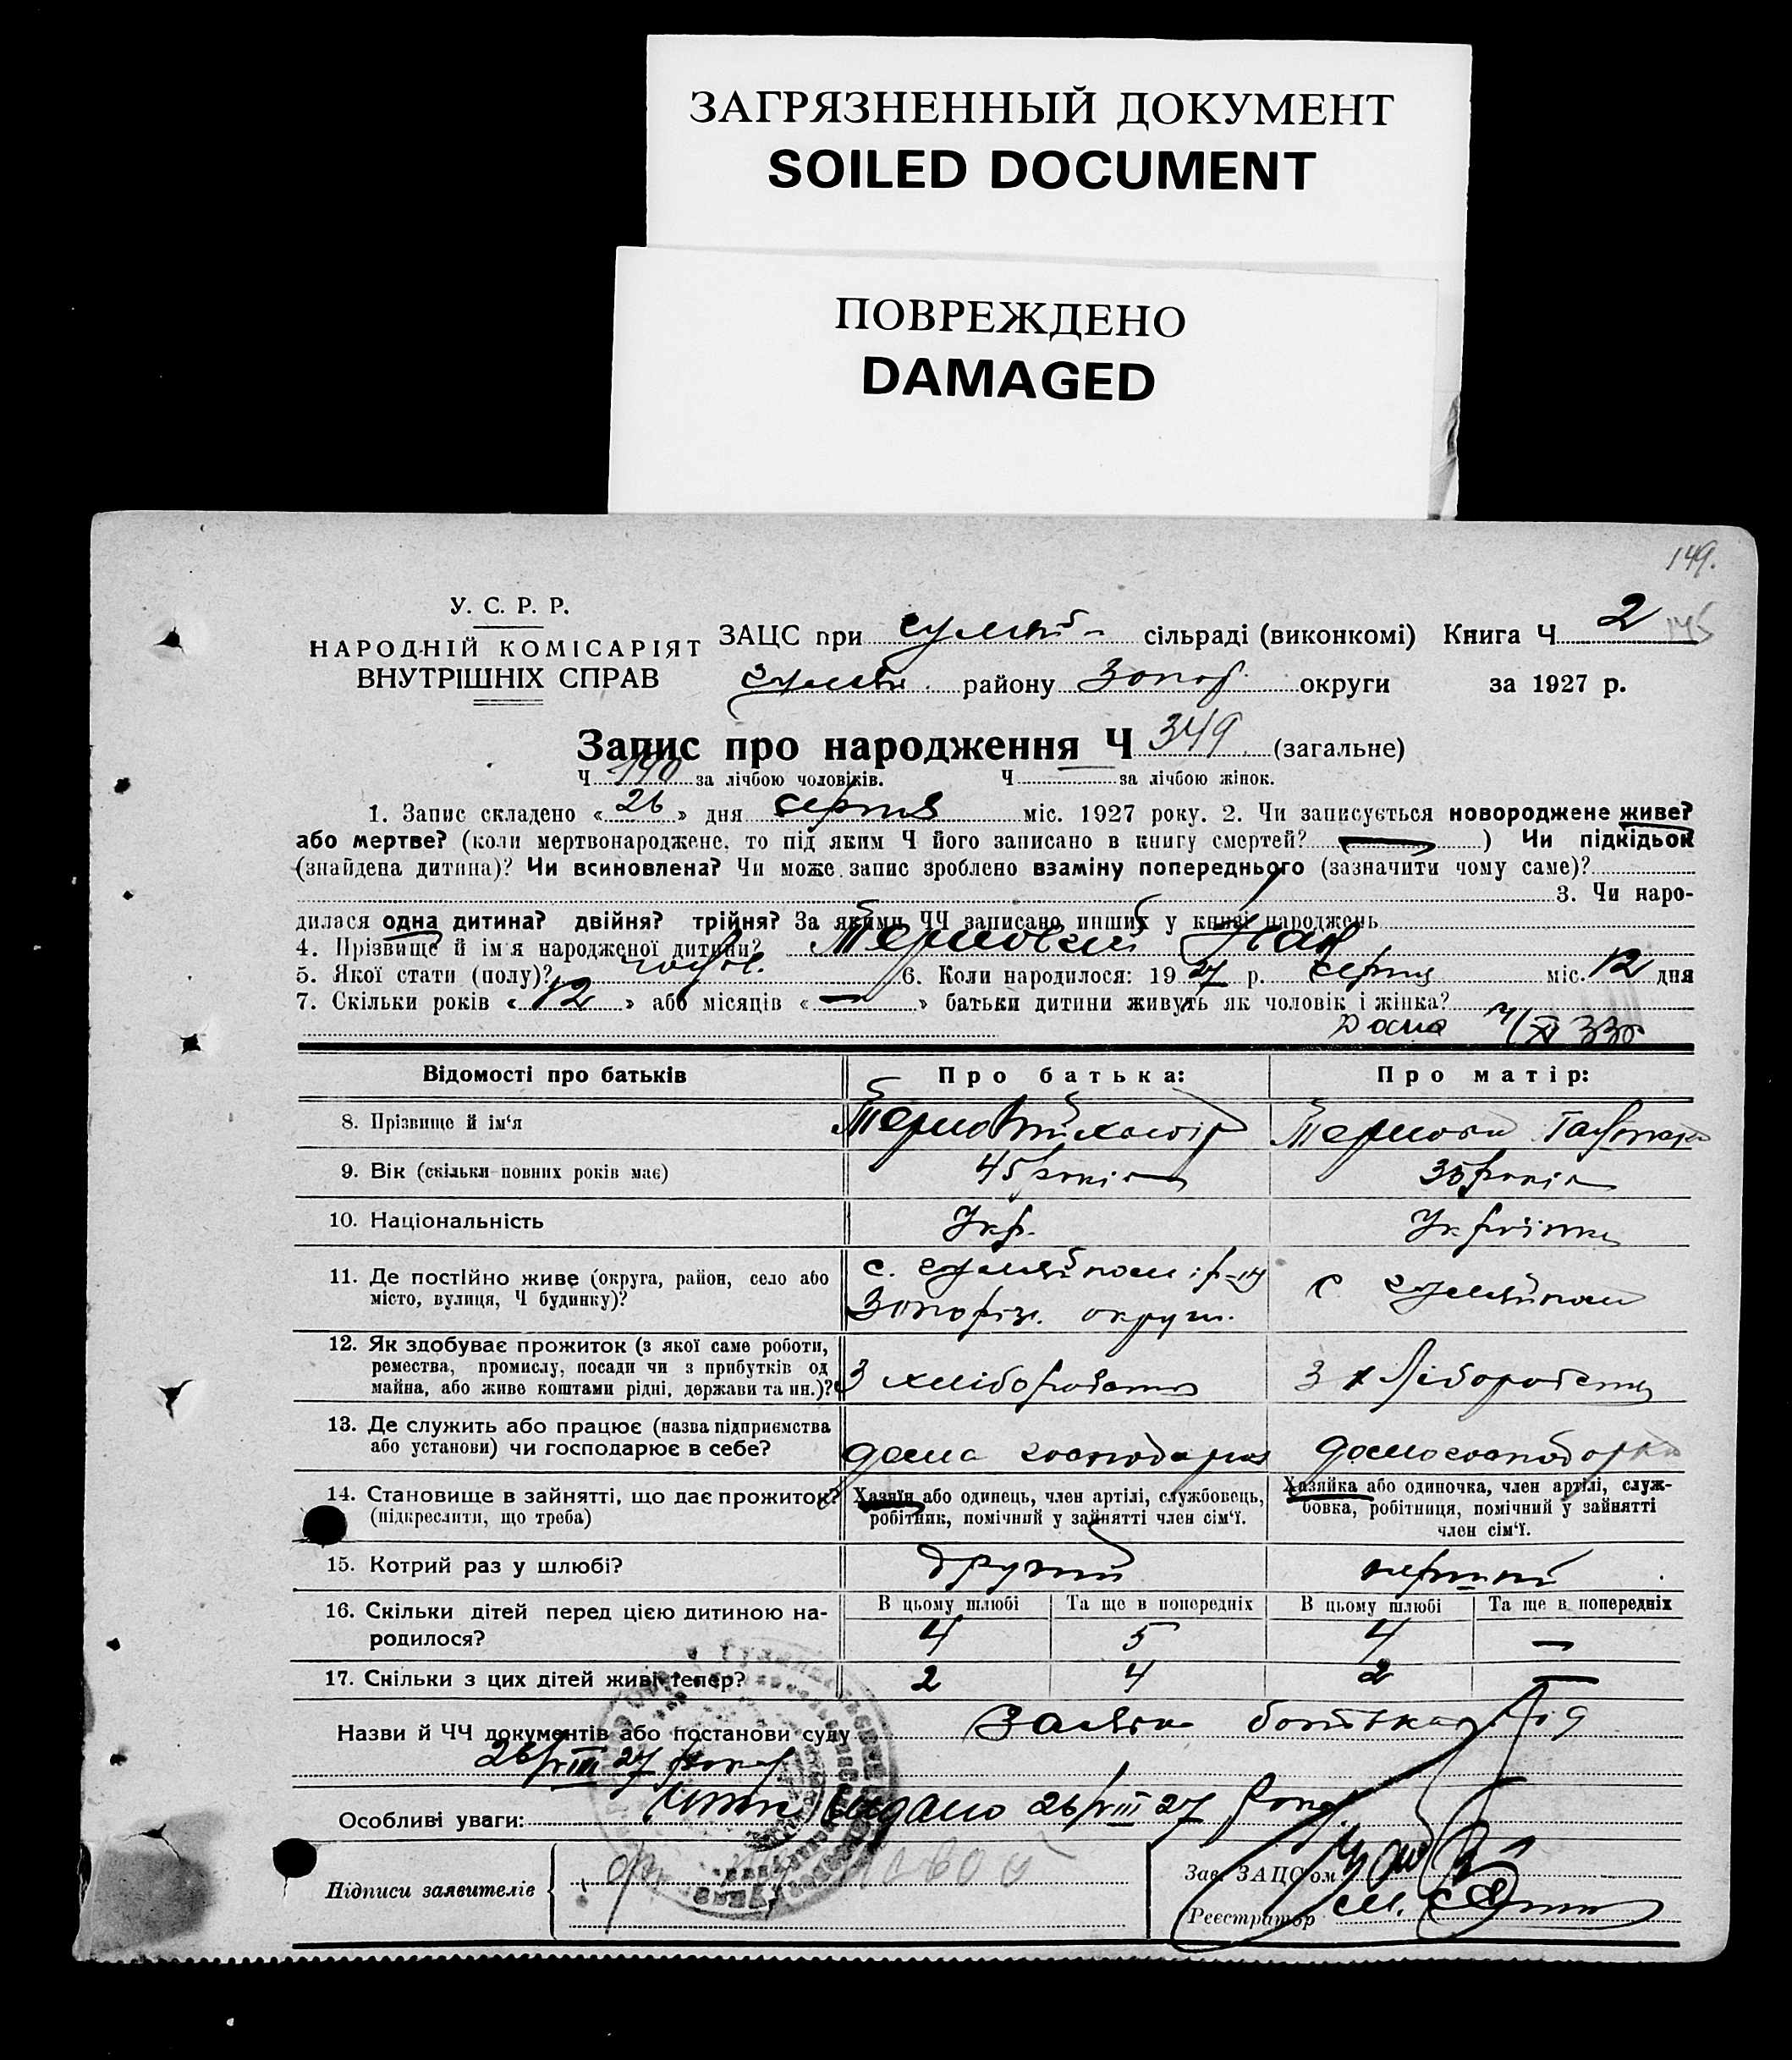 ЗАГРЯЗНЕННЫЙ ДОКУМЕНТ
SOILED DOCUMENT
ПОВРЕЖДЕНО
DAMAGED
149.
У. С. Р. Р.
НАРОДНІЙ КОМІСАРІЯТ
ВНУТРІШНІХ СПРАВ
ЗАЦС при сільраді (виконкомі) Книга Ч 2
району Запор. округи за 1927 р.
Запис про народження Ч 349 (загальне)
Ч 190 за лічбою чоловіків. Ч за лічбою жінок.
1. Запис складено « 26 » дня серпня міс. 1927 року. 2. Чи записується новороджене живе?
або мертве? (коли мертвонароджене, то під яким Ч його записано в книгу смертей? — ) Чи підкідьок
(знайдена дитина)? Чи всиновлена? Чи може запис зроблено взаміну попереднього (зазначити чому саме)?
3. Чи наро-
дилася одна дитина? двійня? трійня? За якими ЧЧ записано инших у книзі народжень
4. Прізвище й ім'я народженої дитини?
5. Якої стати (полу)? 6. Коли народилося: 19 27 р. серпня міс. 12 дня
7. Скільки років « 12 » або місяців « — » батьки дитини живуть як чоловік і жінка?
Відомості про батьків Про батька: Про матір:
8. Прізвище й ім'я
9. Вік (скільки повних років має) 45 років років
10. Національність Укр. Українка
11. Де постійно живе (округа, район, село або
місто, вулиця, Ч будинку)?
с.
Запоріз. округи.
с
12. Як здобуває прожиток (з якої саме роботи,
ремества, промислу, посади чи з прибутків од
майна, або живе коштами рідні, держави та ин.)?
З хліборобства З хліборобства
13. Де служить або працює (назва підприємства
або установи) чи господарює в себе?
дома господарює домогосподарка
14. Становище в зайнятті, що дає прожиток?
(підкреслити, що треба)
Хазяїн або одинець, член артілі, службовець,
робітник, помічний у зайнятті член сім'ї.
Хазяйка або одиночка, член артілі, служ-
бовка, робітниця, помічний у зайнятті
член сім'ї.
15. Котрий раз у шлюбі? другий перший
16. Скільки дітей перед цією дитиною на-
родилося?
В цьому шлюбі Та ще в попередніх В цьому шлюбі Та ще в попередніх
4 5 4 —
17. Скільки з цих дітей живі тепер? 2 4 2 —
Назви й ЧЧ документів або постанови суду Заява батька від
26/VIII 27 року
Особливі уваги: видано 26/VIII 27 року
Підписи заявителів
Зав. ЗАЦС'ом
Реєстратор